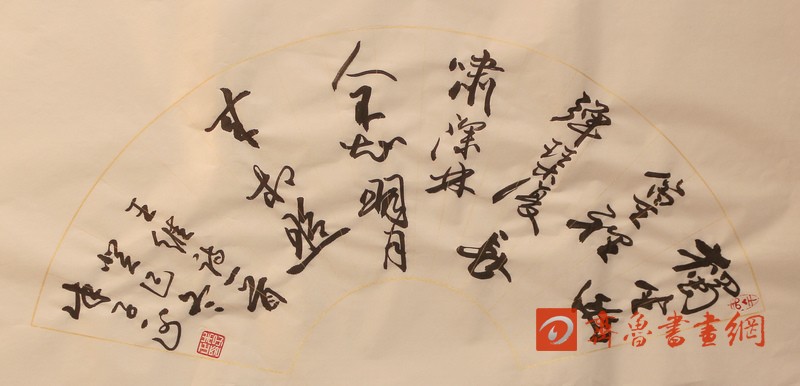 獨坐幽
篁裡
彈琴復長
嘯深林
人不知明月
来相照
王維詩一首
齊魯書畫網